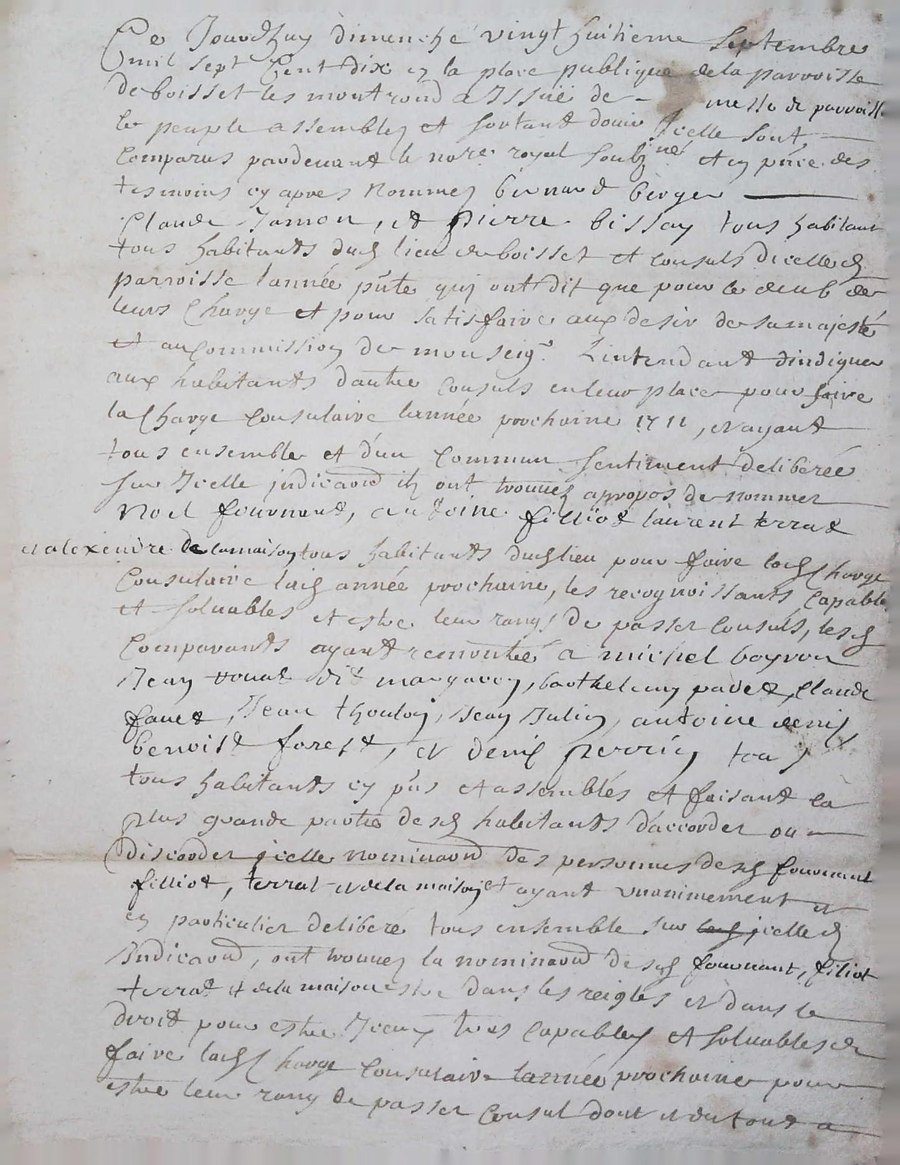 Ce Jourdhuy dimenche vingt huitieme septembre
mil sept Cent dix en la place publique de la parroisse
de boisset les montrond a Issüe de messe de parroiss
le peuple assemblez et sortant douir Jcelle sont
Comparus pardevant le no.re royal soub.né et en pnce des
tesmoins cy apres nommez bernard berger
Claude Jamon, et pierre bissay tous habitant
tous habitants dud lieu de boisset et Consuls dicelle d
parroisse lannée pnte quj ont dit que pour le deub de
leurs Charge et pour satisfaire aux desir de sa majesté
et au Commission de monseigr Lintendant dindiquer
aux habitants dautre Consuls en leur place pour faire
la Charge Consulaire lannée prochaine 1711, et ayant
tous ensemble et dun Commun sentiment deliberée
sur Jcelle jndicaon ils ont trouvez apropos de nommer
Noel fournant, antoine filliot laurent terrat
et alexendre de lamaison tous habitants dud lieu pour faire lad Charge
Consulaire lad année prochaine, les recognoissants Capable
et soluables et estre leur rangs de passer Consuls, lesd
Comparants ayant remontré a michel boyron
Jean dit barthelemy pavet, Claude
favet, Jean thouloy, Jean Julin, antoine denis
benoist forest, et denis perrin tou
tous habitants cy pns et assemblés et faisant la
plus grande partie desd habitants daccorder ou
discorder jcelle nominaon des personnes desd fournant
filliot, terrat et de la maison et ayant unanimement et
en particulier deliberé tous ensemble sur lad jcelle d
Indicaon, ont trouvez la nominaon desd fournant, filiot
terrat et de la maison estre dans les reigles et dans le
droit pour estre Jceux tres Capables et soluables de
faire lad Charge Consulaire lannée prochaine pour
estre leur rang de passer Consul dont et du tout a